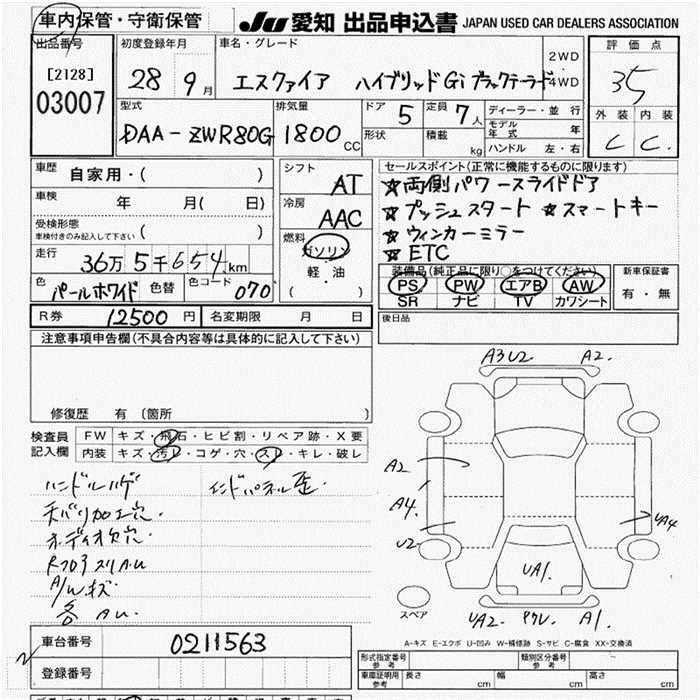 車内保管・守衛保管
JU 愛知 出品申込書 JAPAN USED CAR DEALERS ASSOCIATION
出品番号
[2128]
03007
初度登録年月
28 9月
車名・グレード
エスクァイア ハイブリッドGi ブラックテーラード
2WD
4WD
評価点
35
外装 内装
C C
型式
DAA-ZWR80G
排気量
1800 CC
ドア 5
形状
定員 7人
積載 kg
ディーラー・並行
モデル年式 年
ハンドル 左・右
車歴 自家用・( )
車検 年 月( 日)
受検形態
車検付きのみ記入して下さい ( )
走行 36万5千654km
色 パールホワイト 色替 色コード 070
シフト AT
冷房 AAC
燃料 ガソリン
軽・油
( )
セールスポイント(正常に機能するものに限ります)
☆両側パワースライドドア
☆プッシュスタート ☆スマートキー
☆ウィンカーミラー
☆ETC
装備品(純正品に限り○をつけてください)
PS PW エアB AW
SR ナビ TV カワシート
新車保証書
有・無
R券 12500円 名変期限 月 日
後日品
注意事項申告欄(不具合内容等は具体的に記入して下さい)
修復歴 有(箇所 )
検査員記入欄
FW キズ・飛石・ヒビ割・リペア跡・X要
内装 キズ・汚レ・コゲ・穴・スレ・キレ・破レ
ハンドルハゲ インドパネル歪
天バリ加工穴
オーディオ欠穴
Rフロアスリ A.U
A/Wキズ
各 A.U
A3U2 A2
A2
A4
U2
UA4
UA1
UA2 A1
スペア
A-キズ E-エクボ U-凹み W-補修跡 S-サビ C-腐食 XX-交換済
車台番号 0211563
登録番号
形式指定番号 参考
類別区分番号 参考
車庫証明用 参考 長さ cm 幅 cm 高さ cm